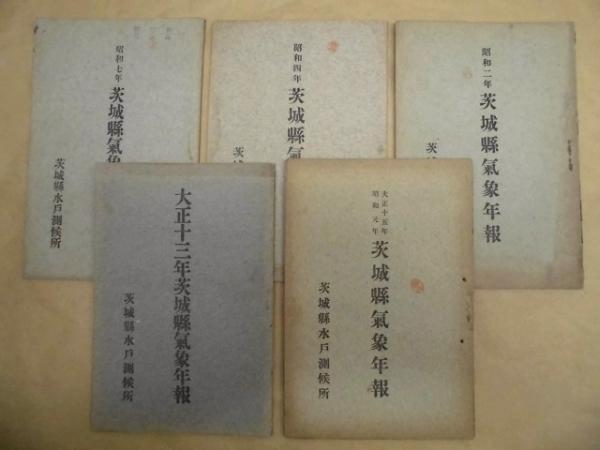 昭和二年
茨城縣氣象年報
茨城
昭和四年
茨城縣氣
茨
昭和七年
茨城縣氣象
茨城縣水戸測候所
大正十五年
昭和元年
茨城縣氣象年報
茨城縣水戸測候所
大正十三年茨城縣氣象年報
茨城縣水戸測候所